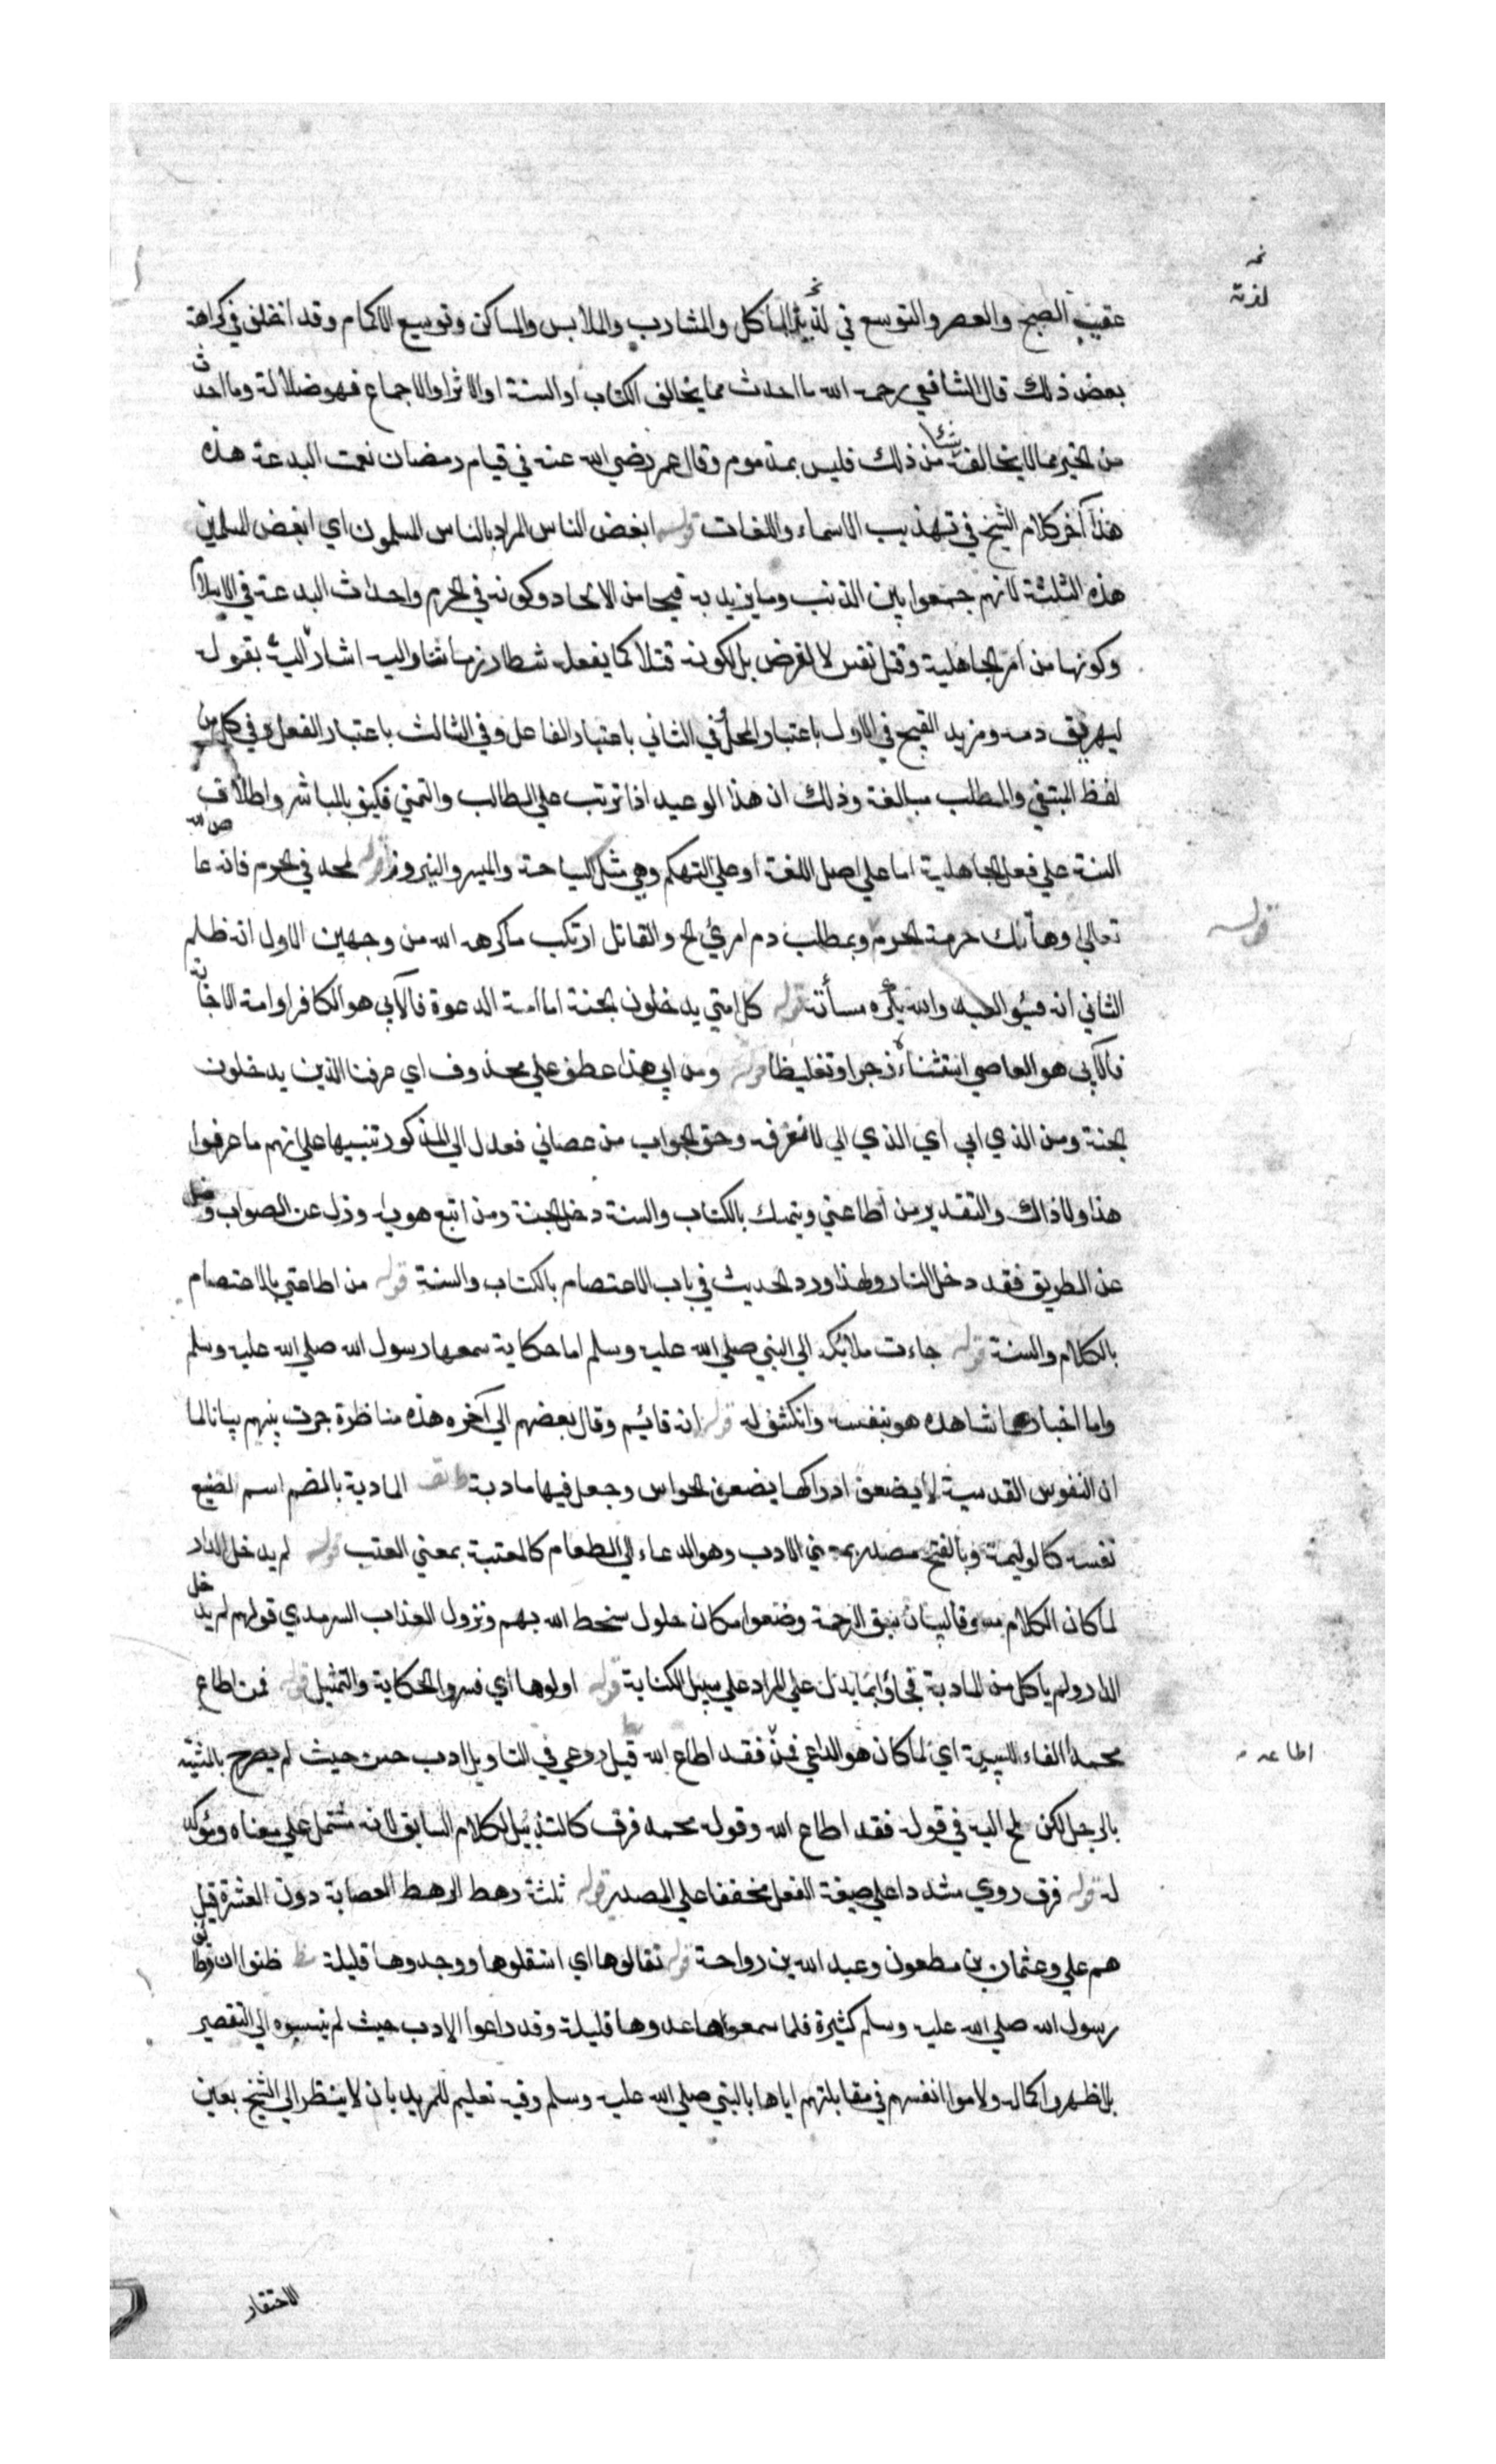 عقيب الصبح والعصر والتوسع في لذيذ المآكل والمشارب والملابس والمساكن وتوسيع الاكمام وقد اختلف في كراهة
بعض ذلك قال الشافعي رحمه الله ما احدث مما يخالف الكتاب او السنة او الاثر او الاجماع فهو ضلالة وما احدث
من الخير مما لا يخالف شيئا من ذلك فليس بمذموم وقال عمر رضي الله عنه في قيام رمضان نعمت البدعة هذه
هذا آخر كلام الشيخ في تهذيب الاسماء واللغات قوله ابغض الناس المراد بالناس المسلمون اي ابغض المسلمين
هذه الثلثة لانهم جمعوا بين الذنب وما يزيد به قبحا من الالحاد وكونه في الحرم واحداث البدعة في الاسلام
وكونها من امر الجاهلية وقتل نفس لا لغرض بل لكونه قتلا كما يفعله شطار زماننا واليه اشار اليه بقوله
ليهريق دمه ومزيد القبح في الاول باعتبار المحل وفي الثاني باعتبار الفاعل وفي الثالث باعتبار الفعل وفي كل من
لفظ المبتغي والمطلب مبالغة وذلك ان هذا الوعيد اذا ترتب علي الطالب والتمني فكيف بالمباشر واطلاق
السنة علي فعل الجاهلية اما علي اصل اللغة او علي التهكم وهي مثل النياحة والميسر والنيروز قوله لمحد في الحرم فانه عا ص لله
تعالى وهاتك حرمة الحرم وبمطلب دم امرئ الخ والقاتل ارتكب ما كرهه الله من وجهين الاول انه ظلم
الثاني انه مسيئ اليه والله يكره مسأته قوله كل امتي يدخلون الجنة اما امة الدعوة فالآبي هو الكافر او امة الاجابة
فالآبي هو العاصي استثناه زجرا وتغليظا قوله ومن ابى هذا عطف علي محذوف اي عرفنا الذين يدخلون
الجنة ومن الذي ابى اي الذي ابى لا نعرفه وحق الجواب من عصاني فعدل الي المذكور تنبيها علي انهم ما عرفوا
هذا ولا ذاك والتقدير من اطاعني وتمسك بالكتاب والسنة دخل الجنة ومن اتبع هويه وزل عن الصواب وضل
عن الطريق فقد دخل النار ولهذا ورد الحديث في باب الاعتصام بالكتاب والسنة قوله من اطاعني بالاعتصام
بالكلام والسنة قوله جاءت ملائكة الي النبي صلي الله عليه وسلم اما حكاية سمعها رسول الله صلي الله عليه وسلم
واما اخبار عما شاهده هو بنفسه وانكشف له قوله انه قائيم وقال بعضهم الي آخره هذه مناظرة جرت بينهم بيانا لما
ان النفوس القدسية لا يضعف ادراكها بضعف الحواس وجعل فيها مادبة المادبة بالضم اسم لصنيع
نفسه كالوليمة وبالفتح مصدر بمعني الادب وهو الدعاء الي الطعام كالمعتبة بمعني العتب قوله لم يدخل الدار
لما كان الكلام مسوقا لبيان سبق الرحمة وضعوا مكان حلول سخط الله بهم ونزول العذاب السرمدي قولهم لم يدخل
الدار ولم ياكل من المادبة فجاؤا بما يدل علي المراد علي سبيل الكناية قوله اولوها اي فسروا الحكاية والتمثيل قوله فمن اطاع
محمدا الفاء للسببية اي لما كان هو الداعي فمن فقد اطاع الله قيل روعي في التاويل ادب حسن حيث لم يصرح بالمشبه
بالرجل لكن لمح اليه في قوله فقد اطاع الله وقوله محمد فرق كالتذييل للكلام السابق لانه مشتمل علي معناه ومؤكد
له قوله فرق روي مشددا علي صيغة الفعل مخففا علي المصدر قوله ثلثة رهط الرهط العصابة دون العشرة قيل
هم علي وعثمان بن مظعون وعبد الله بن رواحة قوله تقالوها اي استقلوها ووجدوها قليلة ظنوا ان وظائف
رسول الله صلي الله عليه وسلم كثيرة فلما سمعوها عدوها قليلة وقد راعوا الادب حيث لم ينسبوه الي التقصير
بل اظهروا كماله ولاموا انفسهم في مقابلتهم اياها بالنبي صلي الله عليه وسلم وفيه تعليم للمريد بان لا ينظر الي الشيخ بعين
الاحتقار
قوله
اطاعه